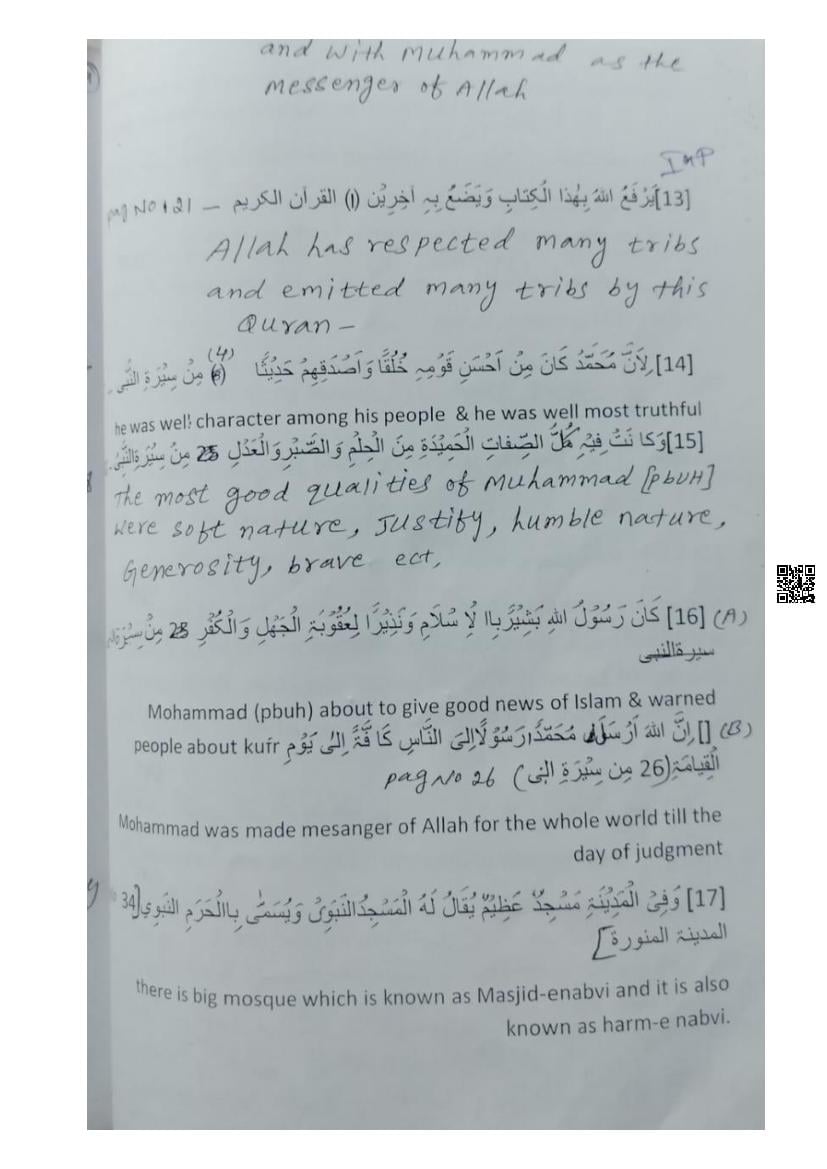 and with Muhammad as the
messenger of Allah
Imp
[13]يَرْفَعُ اللهُ بِهٰذا الْكِتَابِ وَيَضَعُ بِهٖ آخِرِيْن (۱) القرآن الكريم – pag No 121
Allah has respected many tribs
and emitted many tribs by this
Quran –
[14]لِاَنَّ مُحَمَّدُ كَانَ مِنْ اَحْسَنِ قَوْمِهٖ خُلُقًا وَاَصْدَقِهِمْ حَدِيْثًا (4) مِنْ سِيْرَةِ النَّبِی
he was well character among his people & he was well most truthful
[15]وَكا نَتْ فِيْهِ كُلُّ الصِّفاتِ الْحَمِيْدَةِ مِنَ الْحِلْمِ وَالصَّبْرِ وَالْعَدْلِ 25 مِنْ سِيْرَةِالنَّبِی
The most good qualities of Muhammad [PbUH]
were soft nature, Justify, humble nature,
Generosity, brave ect,
(A) [16] كَانَ رَسُوْلُ اللهِ بَشِيْرًا بِاا لْاِ سْلَامِ وَنَذِيْرًا لِعُقُوْبَةِ الْجَهْلِ وَالْكُفْرِ 25 مِنْ سِيْرَة
سيرةالنبی
Mohammad (pbuh) about to give good news of Islam & warned
people about kufr (B) []اِنَّ اللهَ اَرْسَلَ مُحَمَّدًارَسُوْلًااِلیَ النَّاسِ كَا فَّةً اِلیٰ يَوْمِ
الْقِيامَةِ(26 مِن سِيْرَةِ النبی) pag No 26
Mohammad was made mesanger of Allah for the whole world till the
day of judgment
[17] وَفِیْ الْمَدِيْنَةِ مَسْجِدٌ عَظِيْمٌ يُقَالُ لَهُ الْمَسْجِدُالنَبَوِیْ وَيُسَمّٰی بِاالْحَرَمِ النَبَوِي[34
المدينة المنورة]
there is big mosque which is known as Masjid-enabvi and it is also
known as harm-e nabvi.